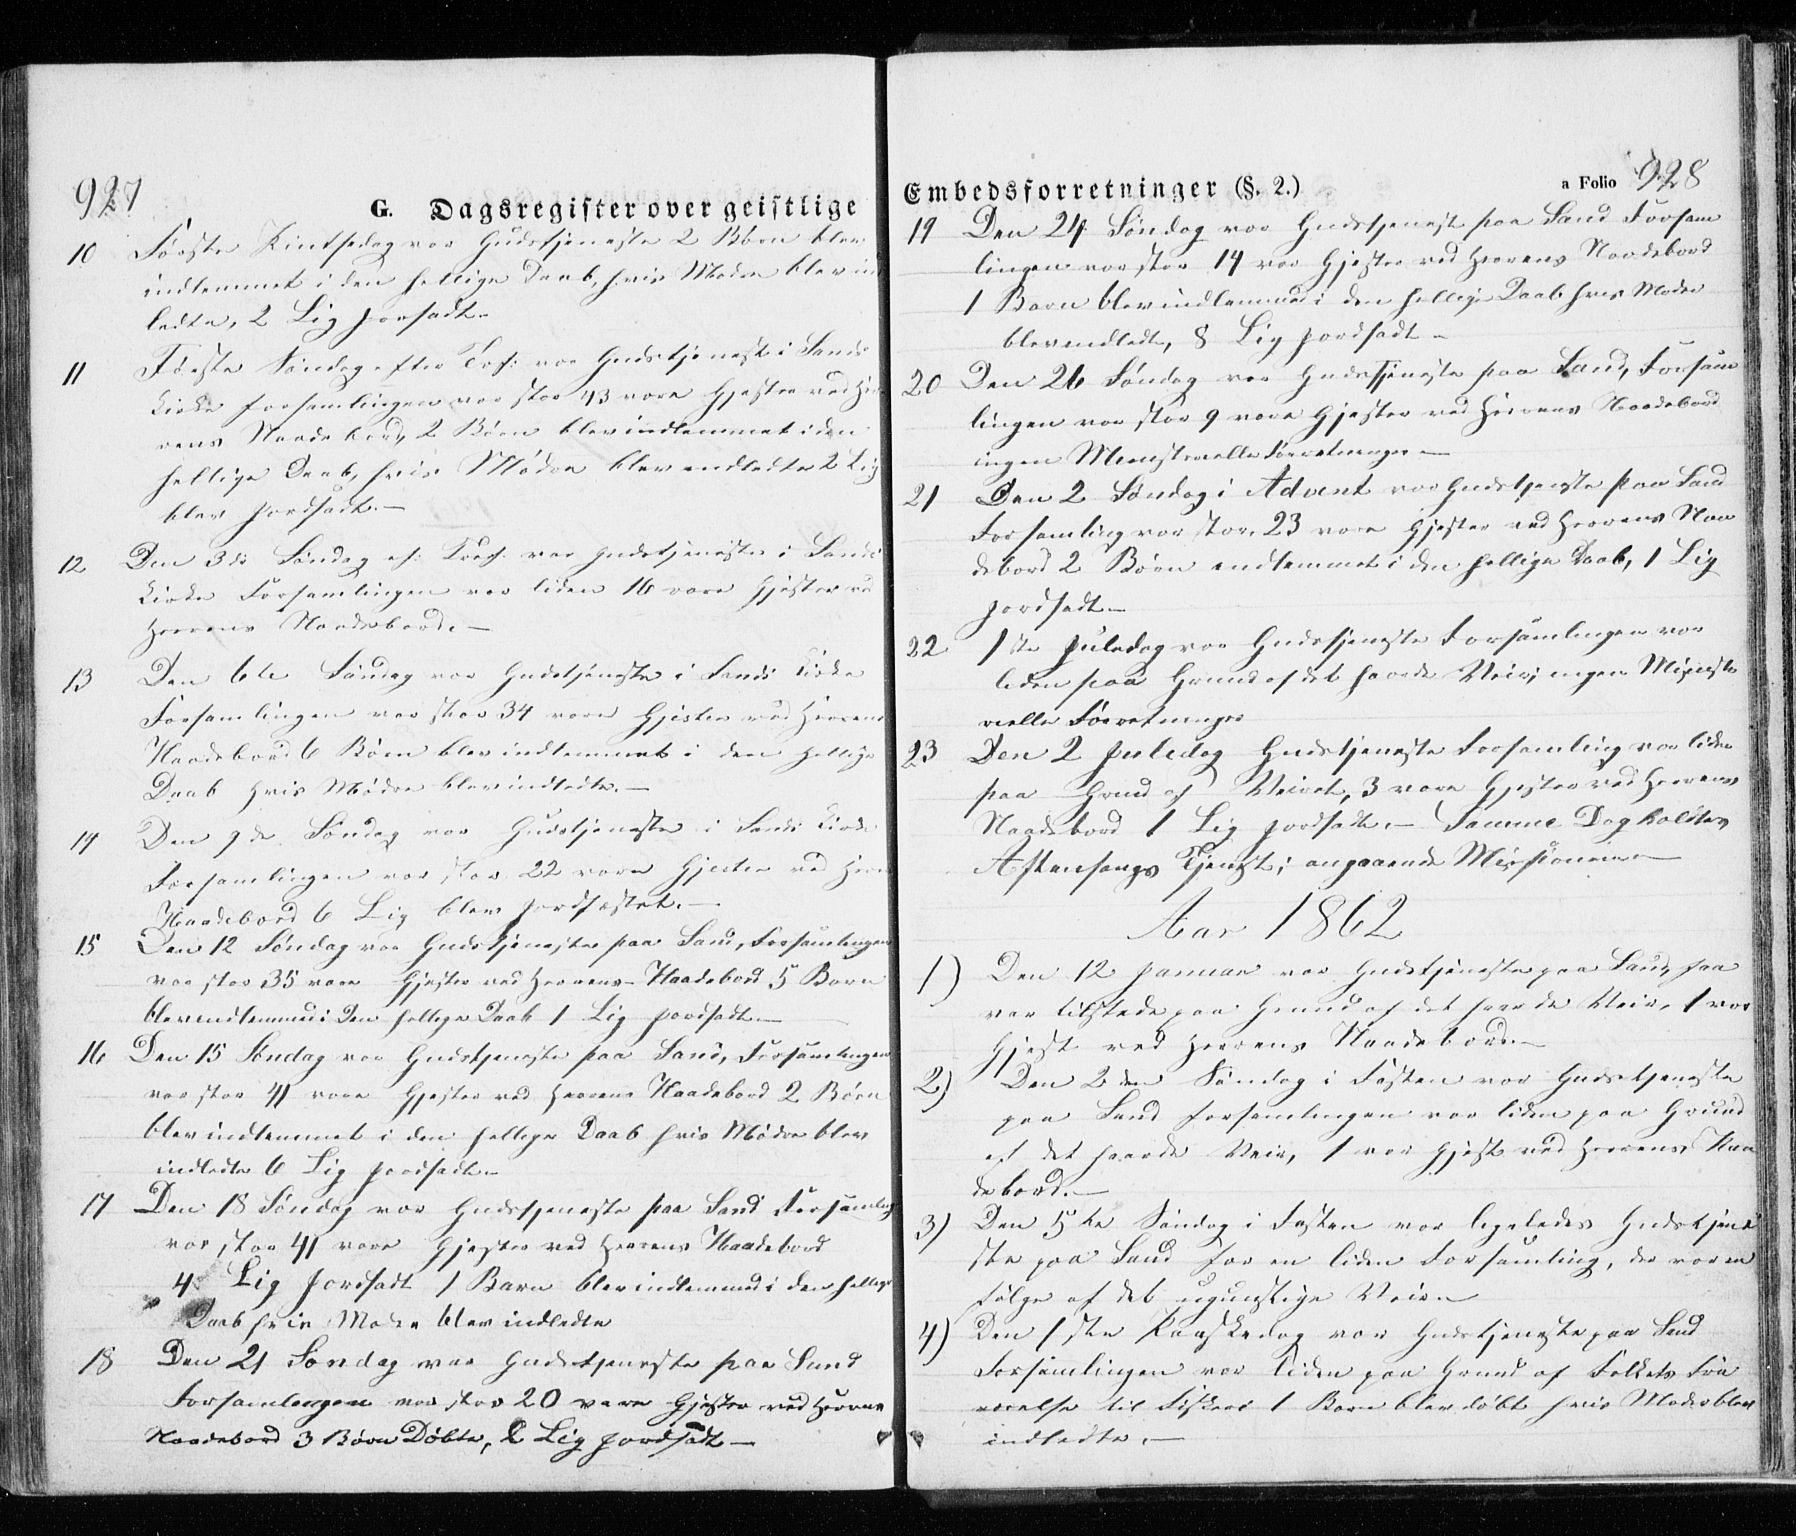 927
G. Dagsregister over geistlige
10 Første Pintsedag var Gudstjeneste 2 Børn blev
indlemmet i den hellige Daab, hvis Mødre blev ind
ledte, 2 Lig jordsadt.
11 Første Søndag efter Tref: var Gudstjeneste i Sands
Kirke forsamlingen var stor 43 vare Gjester ved Her
rens Naadebord, 2 Børn blev indlemmet i den
hellige Daab, hvis Mødre blev indledte 2 Lig
blev jordsadt.—
12 Den 3die Søndag ef: Tref: var Gudstjeneste i Sands
Kirke Forsamlingen var liden 16 vare Gjester ved
Herrens Naadebord.—
13 Den 6te Søndag var Gudstjenste i Sands Kirke
Forsamlingen var stor 34 vare Gjester ved Herrens
Naadebord 6 Børn blev indlemmet i den hellige
Daab hvis Mødre blev indledte.—
14 Den 9de Søndag var Gudstjeneste i Sands Kirke
Forsamlingen var stor 22 vare Gjester ved Herrens
Naadebord 6 Lig blev jordfæstet.—
15 Den 12 Søndag var Gudstjeneste paa Sand, Forsamlingen
var stor 35 vare Gjester ved Herrens Naadebord 5 Børn
blev indlemmed i Den hellige Daab 1 Lig jordsadt.—
16 Den 15 Søndag var Gudstjeneste paa Sand, Forsamlingen
var stor 41 vare Gjester ved Herrens Naadebord 2 Børn
blev indlemmet i den hellige Daab hvis Mødre blev
indledte 6 Lig jordsadt.
17 Den 18 Søndag var Gudstjeneste paa Sand Forsamling
var stor 41 vare Gjester ved Herrens Naadebord
4. Lig jordsadt 1 Barn blev indlemmed i den hellige
Daab hvis Moder blev indledte
18 Den 21 Søndag var Gudstjeneste paa Sand
Forsamlingen var stor 20 vare Gjester ved Herrens
Naadebord 3 Børn Døbte, 2 Lig jordsadt—
Embedsforretninger (§. 2.)
a Folio 928
19 Den 24 Søndag var Gudstjenest paa Sand Forsam
lingen var stor 14 var Gjester ved Herrens Naadebord
1 Barn blev indlemmed i den hellige Daab hvis Moder
blev indledt, 8 Lig jordsadt—
20 Den 26 Søndag var Gudstjeneste paa Sand, Forsam
lingen var stor 9 vare Gjester ved Herrens Naadebord
ingen Ministerielle Forretninger—
21 Den 2 Søndag i Advent var Gudstjenste paa Sand
Forsamling var stor, 23 vare Gjester ved Herrens Naa
debord 2 Børn indlemmet i den hellige Daab, 1 Lig
jordsadt—
22 1ste Juledag var Gudstjeneste Forsamlingen var
liden paa Grund af det haarde Veir, ingen Ministe
rielle Forretninger
23 Den 2 Juledag Gudstjeneste Forsamling var liden
paa Grund af Veiret, 3 vare Gjester ved Herrens
Naadebord 1 Lig jordsadt.— Samme Dag holdtes
Aftensangs Tjenest; angaaende Missionen—
Aar 1862
1) Den 12 Januar var Gudstjeneste paa Sand, faa
var tilstede paa Grund af det haarde Veir, 1 var
Gjest ved Herrens Naadebord.—
2) Den 2den Søndag i Fasten var Gudstjeneste
paa Sand forsamlingen var liden paa Grund
af det haarde Veir, 1 var Gjest ved Herrens Naa
debord.—
3) Den 5te Søndag i Fasten var ligeledes Gudstjene
ste paa Sand for en liden Forsamling, der var en
Følge af det ugunstige Veir.
4) Den 1ste Paaskedag var Gudstjeneste paa Sand
Forsamlingen var liden paa Grund af Folkets Fra
værelse til Fiskeri 1 Barn blev døbt hvis Moder blev
indledte.—